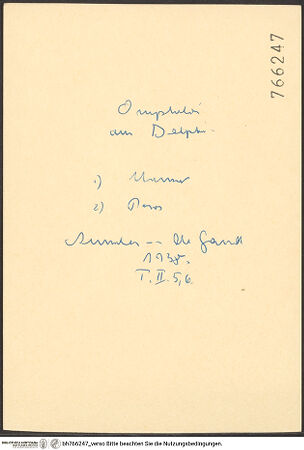 766247
Omphaloi
aus Delphi.
1) Marmor
2) Poros
de Gand
1938.
T. II. 5,6.
bh766247_verso Bitte beachten Sie die Nutzungsbedingungen.